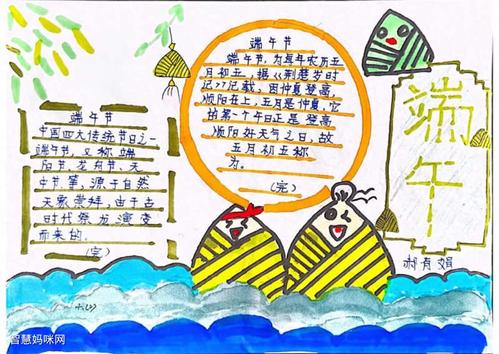 端午节
端午节，为每年农历五
月初五，据《荆楚岁时
记》记载，因仲夏登高，
顺阳在上，五月是仲夏，它
的第一个午日正是登高
顺阳好天气之日，故
五月初五称
为。
（完）
端午节
中国四大传统节日之一
端午节，又称端
阳节、龙舟节、天
中节等，源于自然
天象崇拜，由上古
时代祭龙演变
而来的。
（完）
端午
郝有娟
智慧妈咪网